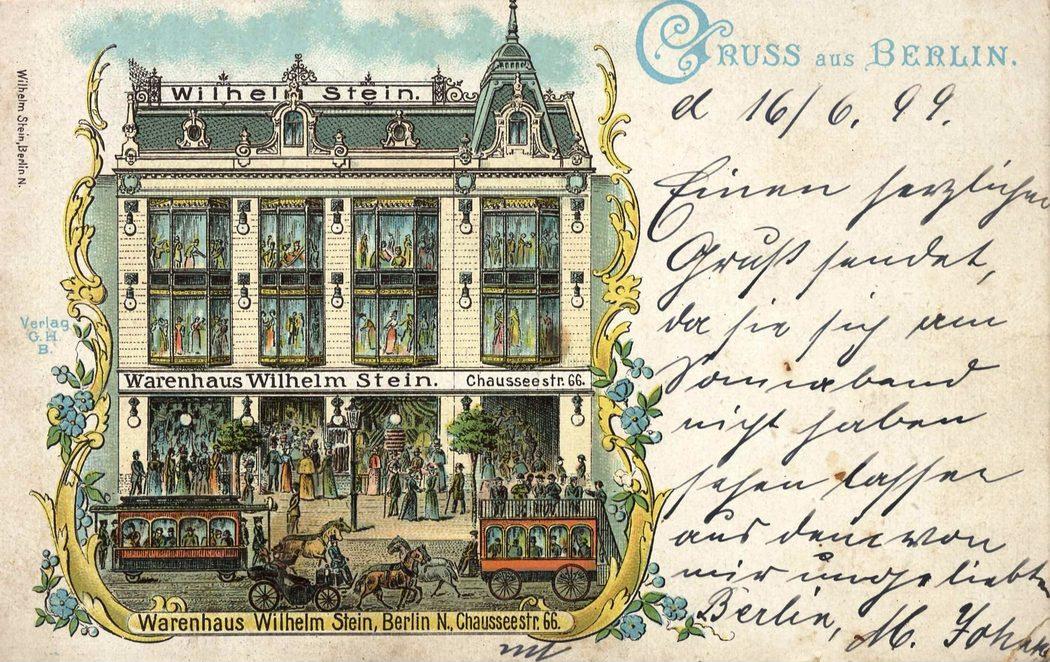 GRUSS aus BERLIN.
d 16/6. 99.
Einen herzlichen
Gruß sendet,
da sie sich am
Sonnabend
nicht haben
sehen lassen
aus dem von
mir ungeliebten
Berlin, M. Johan
Wilhelm Stein.
Warenhaus Wilhelm Stein. Chausseestr. 66.
Warenhaus Wilhelm Stein, Berlin N., Chausseestr. 66.
Wilhelm Stein, Berlin N.
Verlag
G. H.
B.